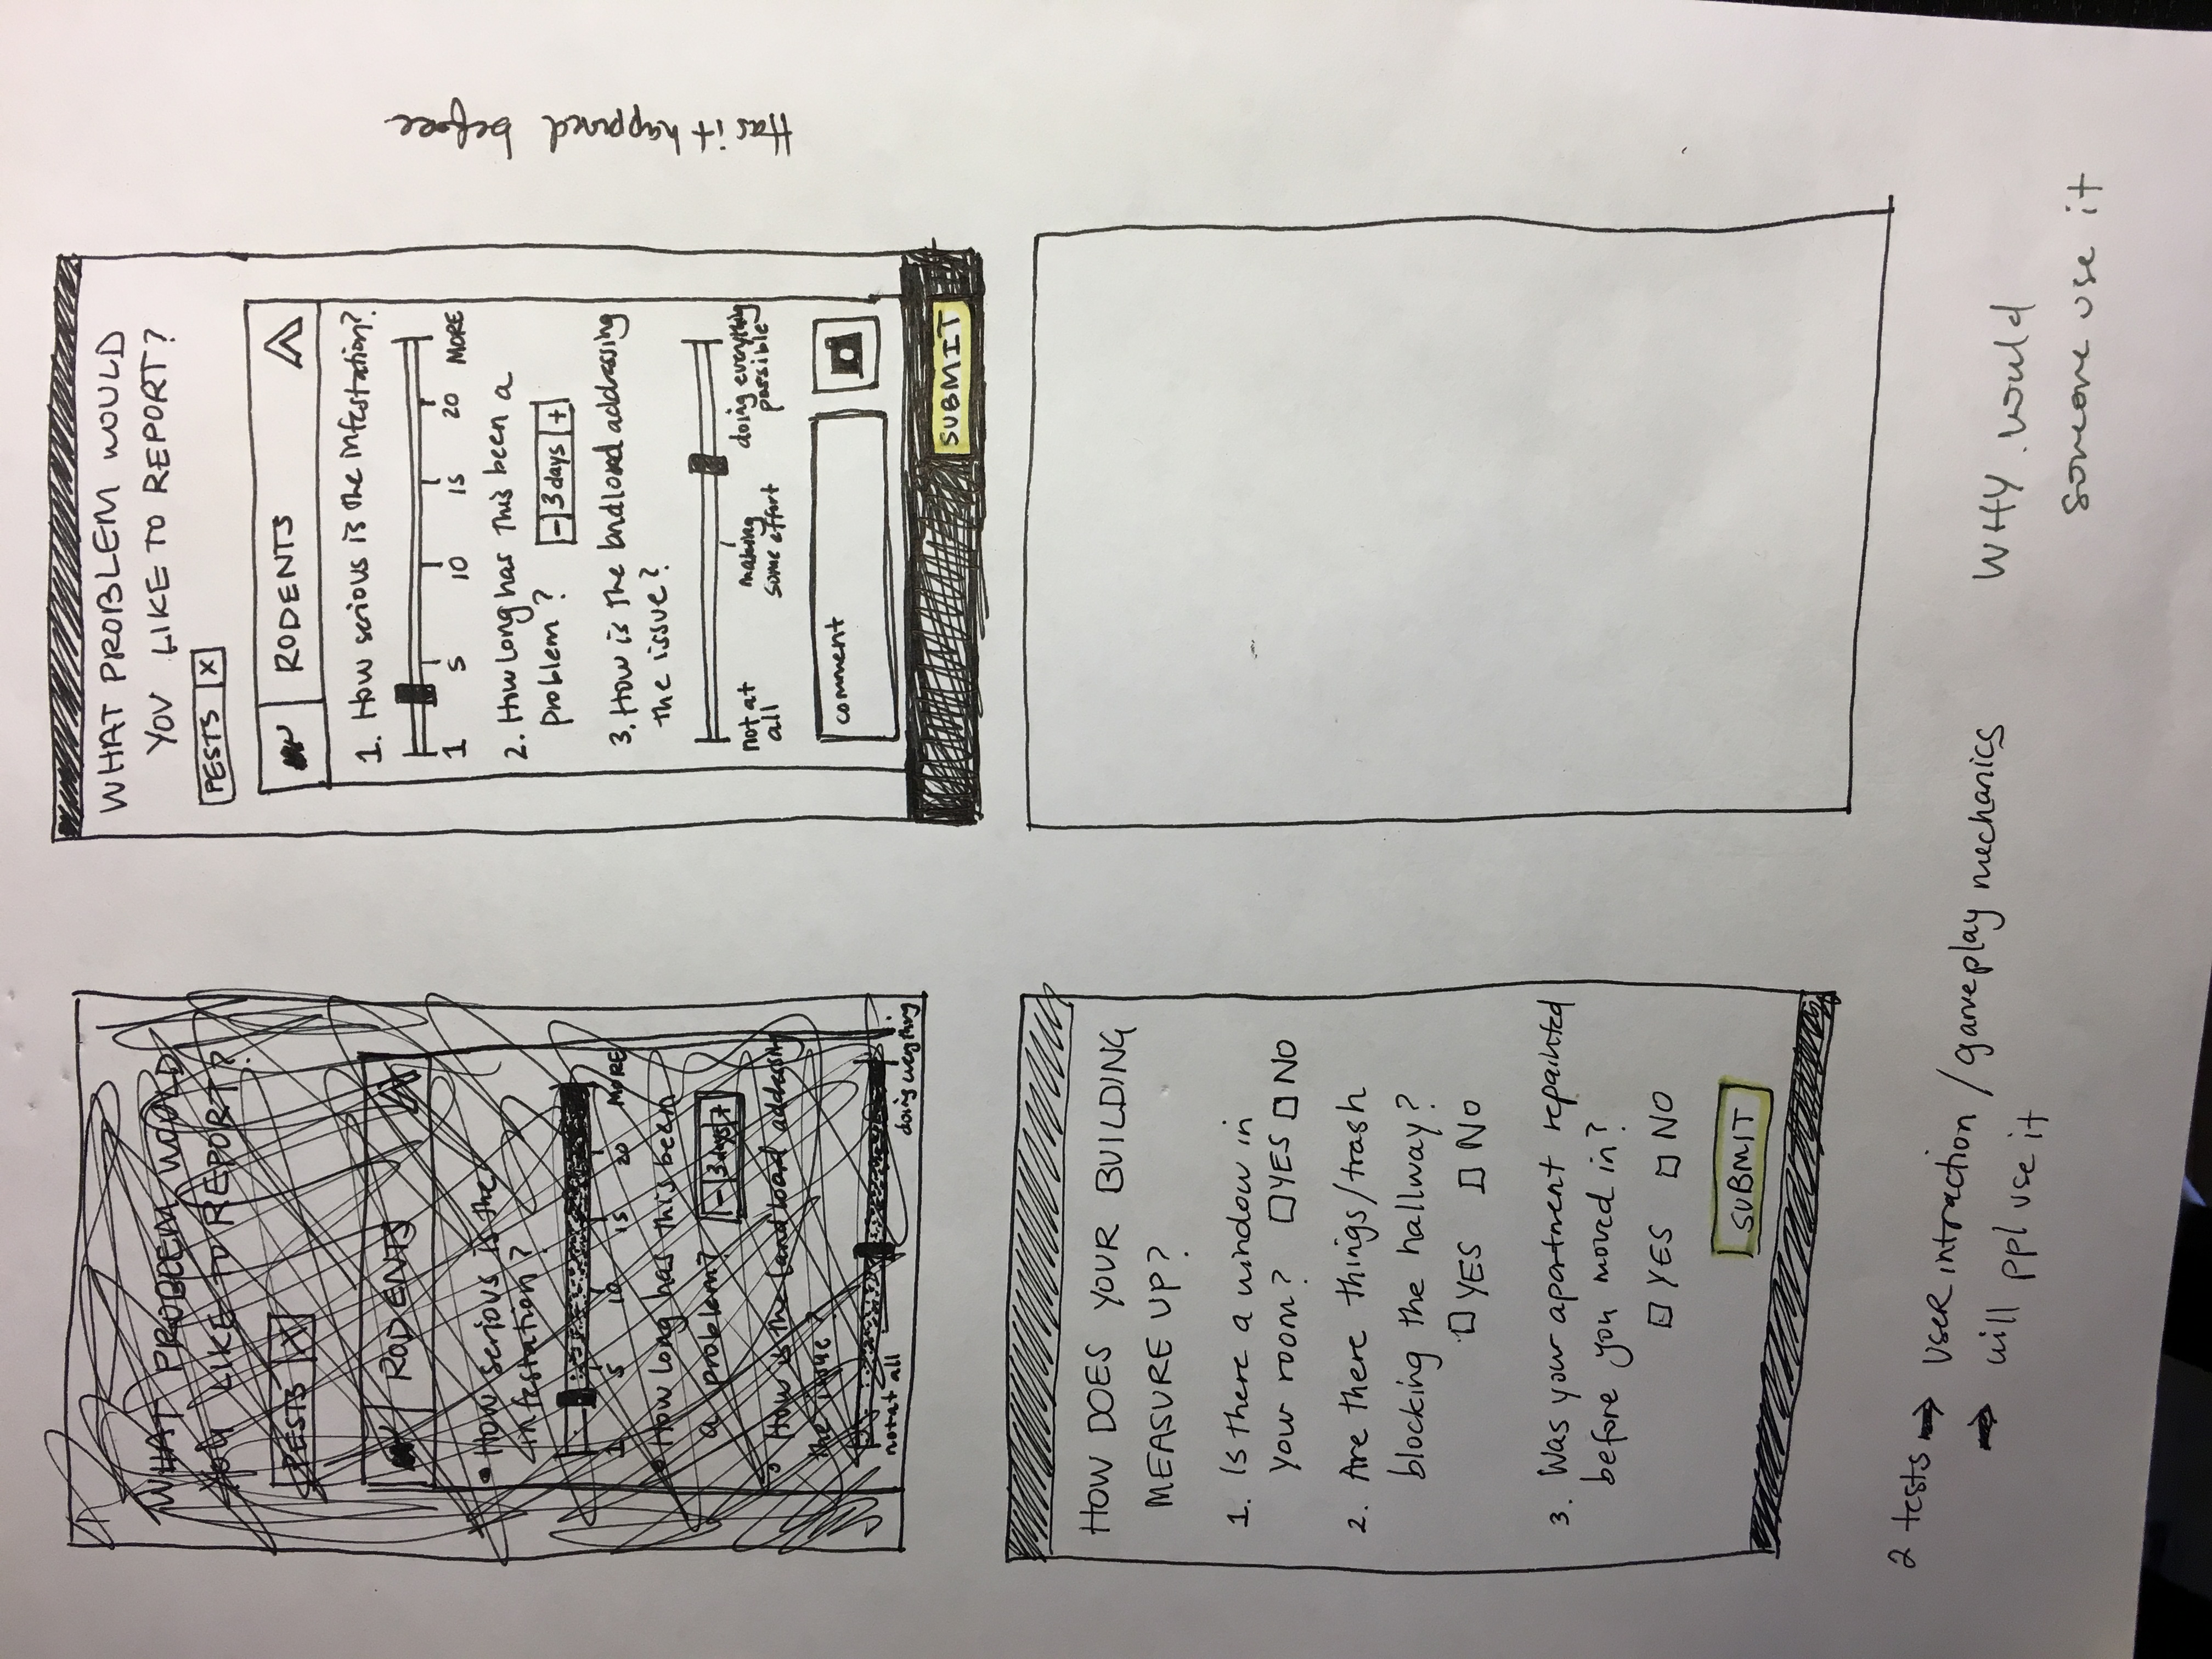 WHAT PROBLEM WOULD
YOU LIKE TO REPORT?
PESTS X
RODENTS
• How serious is the
infestation?
1 5 10 15 20 MORE
• How long has this been
a problem? - 3 days +
• How is the landload addressing
the issue?
not at all doing everything
WHAT PROBLEM WOULD
YOU LIKE TO REPORT?
PESTS X
RODENTS
1. How serious is the infestation?
1 5 10 15 20 MORE
2. How long has this been a
problem? - 3 days +
3. How is the landlord addressing
the issue?
not at making doing everything
all some effort possible
comment
SUBMIT
Has it happened before
HOW DOES YOUR BUILDING
MEASURE UP?
1. Is there a window in
your room? YES NO
2. Are there things/trash
blocking the hallway?
YES NO
3. Was your apartment repainted
before you moved in?
YES NO
SUBMIT
2 tests → User intraction / gameplay mechanics
→ will ppl use it
WHY would
someone use it